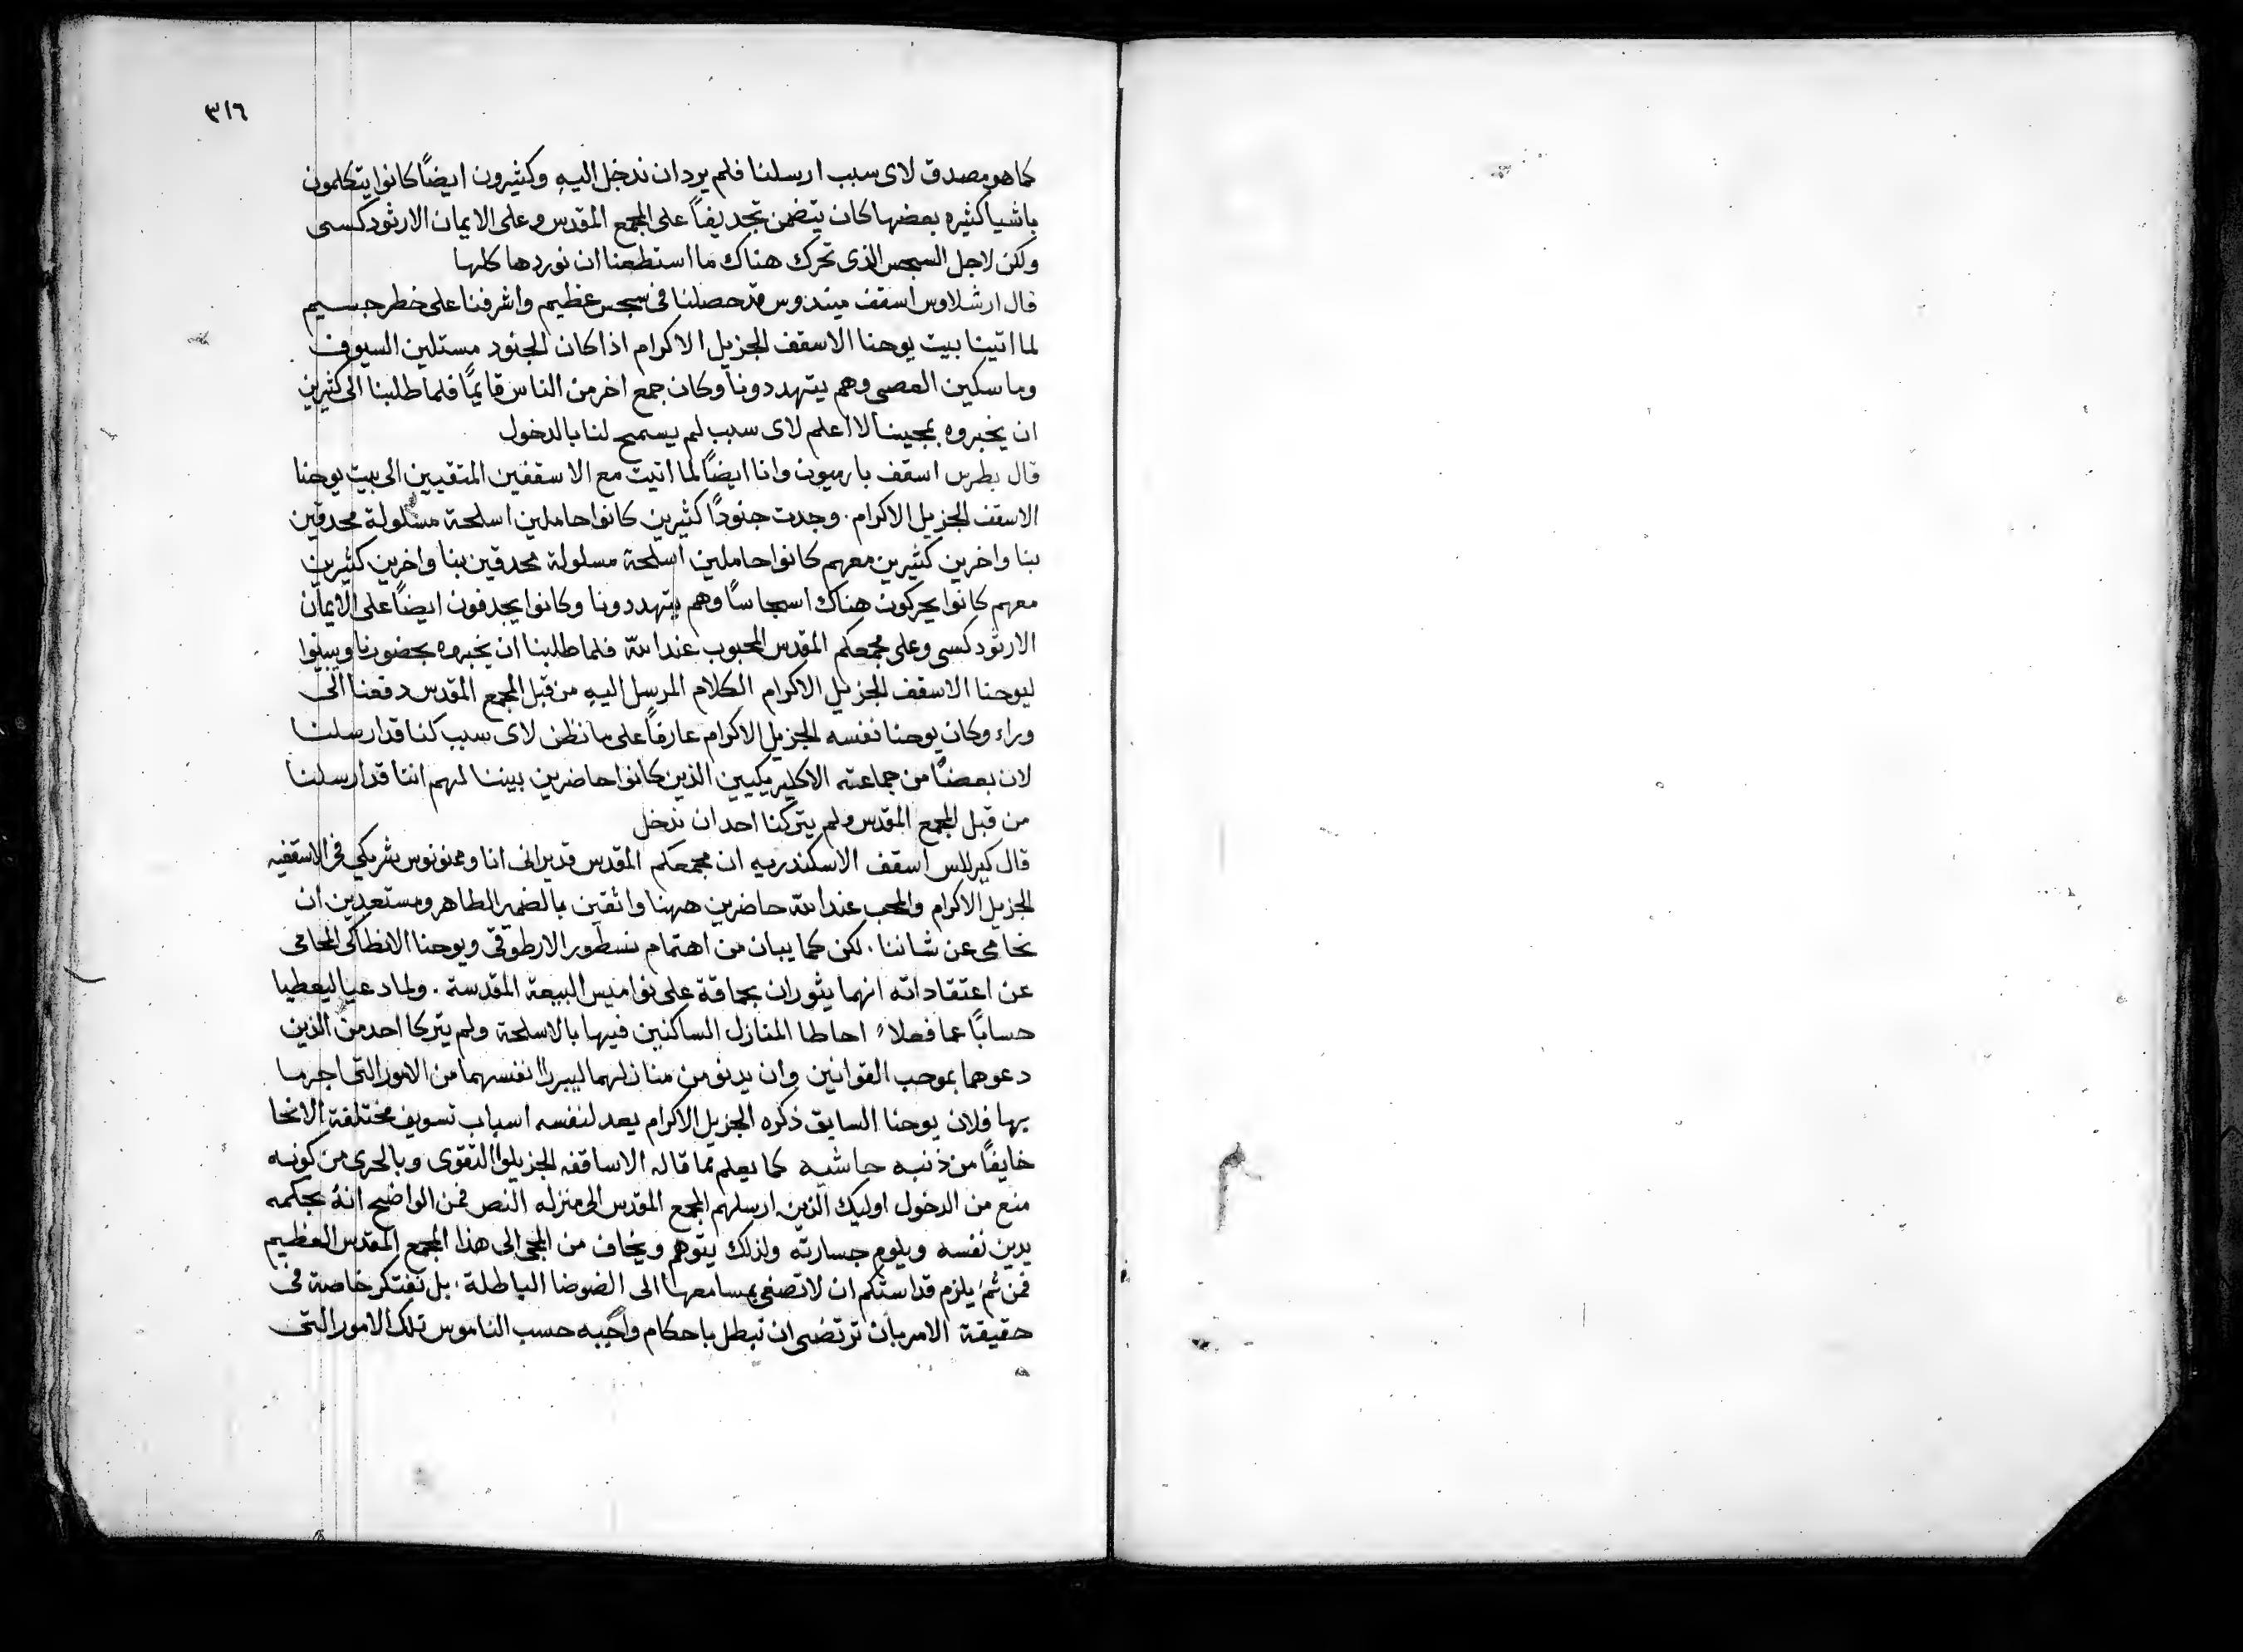 ٣١٦
كما هو مصدق لاى سبب ارسلنا فلم يرد ان ندخل اليهِ وكثيرون ايضًا كانوا يتكلمون
باشيا كثيره بعضها كان يتضمن تجديفاً على المجمع المقدس وعلى الايمان الارثودكسى
ولكن لاجل السجس الذى تحرك هناك ما استطعنا ان نوردها كلها
قال ارشلاوس اسقف ميندوس قد حصلنا فى سجس عظيم واشرفنا على خطر جسيم
لما اتينا بيت يوحنا الاسقف الجزيل الاكرام اذ كان الجنود مستلين السيوف
وماسكين العصى وهم يتهددونا وكان جمع اخر من الناس قايمًا فلما طلبنا الى كثيرين
ان يخبروه بمجينا لا اعلم لاى سبب لم يسمح لنا بالدخول
قال بطرس اسقف بارميون وانا ايضًا لما اتيت مع الاسقفين المتقيين الى بيت يوحنا
الاسقف الجزيل الاكرام. وجدت جنودًا كثيرين كانوا حاملين اسلحة مسلولة محدقين
بنا واخرين كثيرين معهم كانوا حاملين اسلحة مسلولة محدقين بنا واخرين كثيرين
معهم كانوا يحركون هناك اسجاسًا وهم يتهددونا وكانوا يجدفون ايضًا على الايمان
الارثودكسى وعلى مجمعكم المقدس المحبوب عند الله فلما طلبنا ان يخبروه بحضورنا ويبينوا
ليوحنا الاسقف الجزيل الاكرام الكلام المرسل اليهِ من قبل المجمع المقدس دفعنا الى
وراء وكان يوحنا نفسه الجزيل الاكرام عارفاً على ما نظن لاى سبب كنا قد ارسلنا
لان بعضًا من جماعته الاكليريكيين الذين كانوا حاضرين بيننا لهم اننا قد ارسلنا
من قبل المجمع المقدس ولم يتركنا احد ان ندخل
قال كيرللس اسقف الاسكندريه ان مجمعكم المقدس قد يرانى انا وممنونوس شريكي فى الاسقفيه
الجزيل الاكرام والمحب عند الله حاضرين ههنا واثقين بالضمير الطاهر ومستعدين ان
نحامى عن شاننا. لكن كما يبان من اهتمام نسطور الارطوقى ويوحنا الانطاكى المحامى
عن اعتقاداته انهما يثوران بحماقة على نواميس البيعة المقدسة. ولما دعيا ليعطيا
حسابًا عما فعلاء احاطا المنازل الساكنين فيها بالاسلحة ولم يتركا احد من الذين
دعوهما بموجب القوانين وان يدنو من منازلهما ليبررا نفسهما من الامور التى اجرما
بها فلان يوحنا السابق ذكره الجزيل الاكرام يعد لنفسه اسباب تسويف مختلفة الانحا
خايفًا من ذنبه حاشيه كما يعلم مما قاله الاساقفه الجزيلوا التقوى وبالحرى من كونه
منع من الدخول اوليك الذين ارسلهم المجمع المقدس الى منزله النص فمن الواضح انهُ بحكمه
يدين نفسه ويلوم جسارته ولذلك يتوهم ويخاف من المجى الى هذا المجمع المقدس العظيم
فمن ثم يلزم قداستكم ان لا تصغى بمسامعها الى الضوضا الباطلة. بل تفتكر خاصة فى
حقيقة الامر بان ترتضى ان تبطل باحكام واجبه حسب الناموس تلك الامور التى